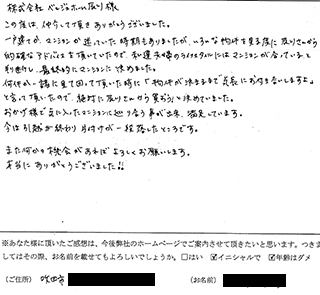 株式会社ベンジホーム反り様
この度は、仲介して頂きありがとうございました。
一戸建てか、マンションか迷っていた時期もありましたが、いろんな物件を見る度に反りさんから
的確なアドバイスを頂いていたので、私達夫婦のライフスタイルにはマンションが合っていると
判断し、最終的にマンションに決めました。
何件か一緒に見て回って頂いた時に「物件が決まるまで気長にお付き合いしますよ」
と言って頂いたので、絶対に反りさんから買おうと決めていました。
おかげ様で気に入ったマンションに巡り会う事が出来、満足しています。
今は引越が終わり片付けが一段落したところです。
また何かの機会があればよろしくお願いします。
本当にありがとうございました!!
※あなた様に頂いたご感想は、今後弊社のホームページでご案内させて頂きたいと思います。つきま
してはその際、お名前を載せてもよろしいでしょうか。□はい ☑イニシャルで ☑年齢はダメ
(ご住所) 吹田市 (お名前)